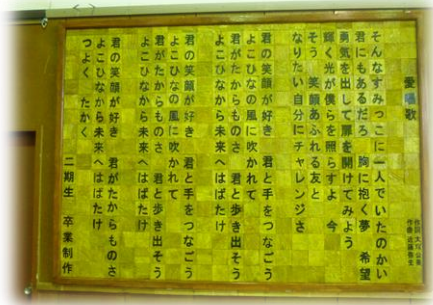 愛唱歌
そんなすみっこに一人でいたのかい
君にもあるだろ 胸に抱く夢 希望
勇気を出して扉を開けてみよう
輝く光が僕らを照らすよ 今
そう 笑顔あふれる友と
なりたい自分にチャレンジさ
君の笑顔が好き 君と手をつなごう
よこひなの風に吹かれて
君がたからものさ 君と歩き出そう
よこひなから未来へはばたけ
君の笑顔が好き 君と手をつなごう
よこひなの風に吹かれて
君がたからものさ 君と歩き出そう
よこひなから未来へはばたけ
君の笑顔が好き 君がたからものさ
よこひなから未来へはばたけ
つよく たかく
二期生 卒業制作